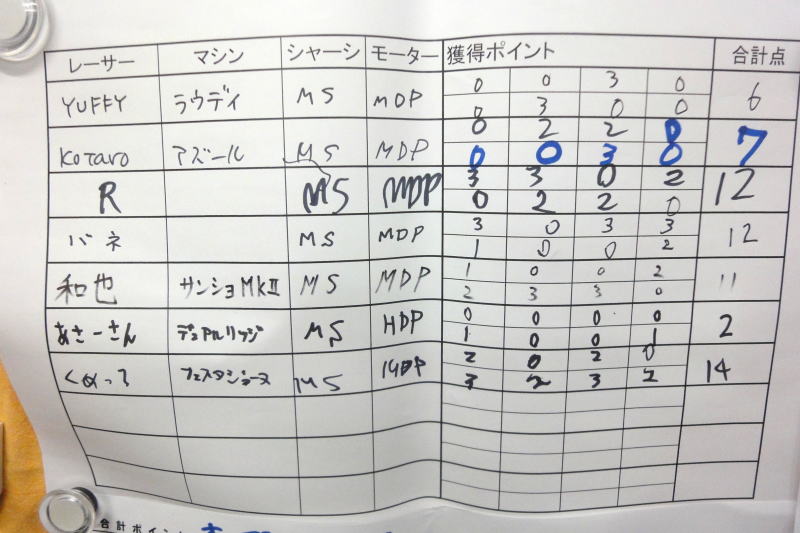 レーサー マシン シャーシ モーター 獲得ポイント 合計点
YUFFY ラウディ MS MDP 0 0 3 0 6
0 3 0 0
Kotaro アズール MS MDP 0 2 2 0 7
0 0 3 0
R MS MDP 3 3 0 2 12
0 2 2 0
バネ MS MDP 3 0 3 3 12
1 0 0 2
和也 サンショMkⅡ MS MDP 1 0 0 2 11
2 3 3 0
あさーさん デュアルリッジ MS HDP 0 0 0 0 2
1 0 0 1
くめって MS MDP 2 0 2 0 14
3 2 3 2
合計ポイント